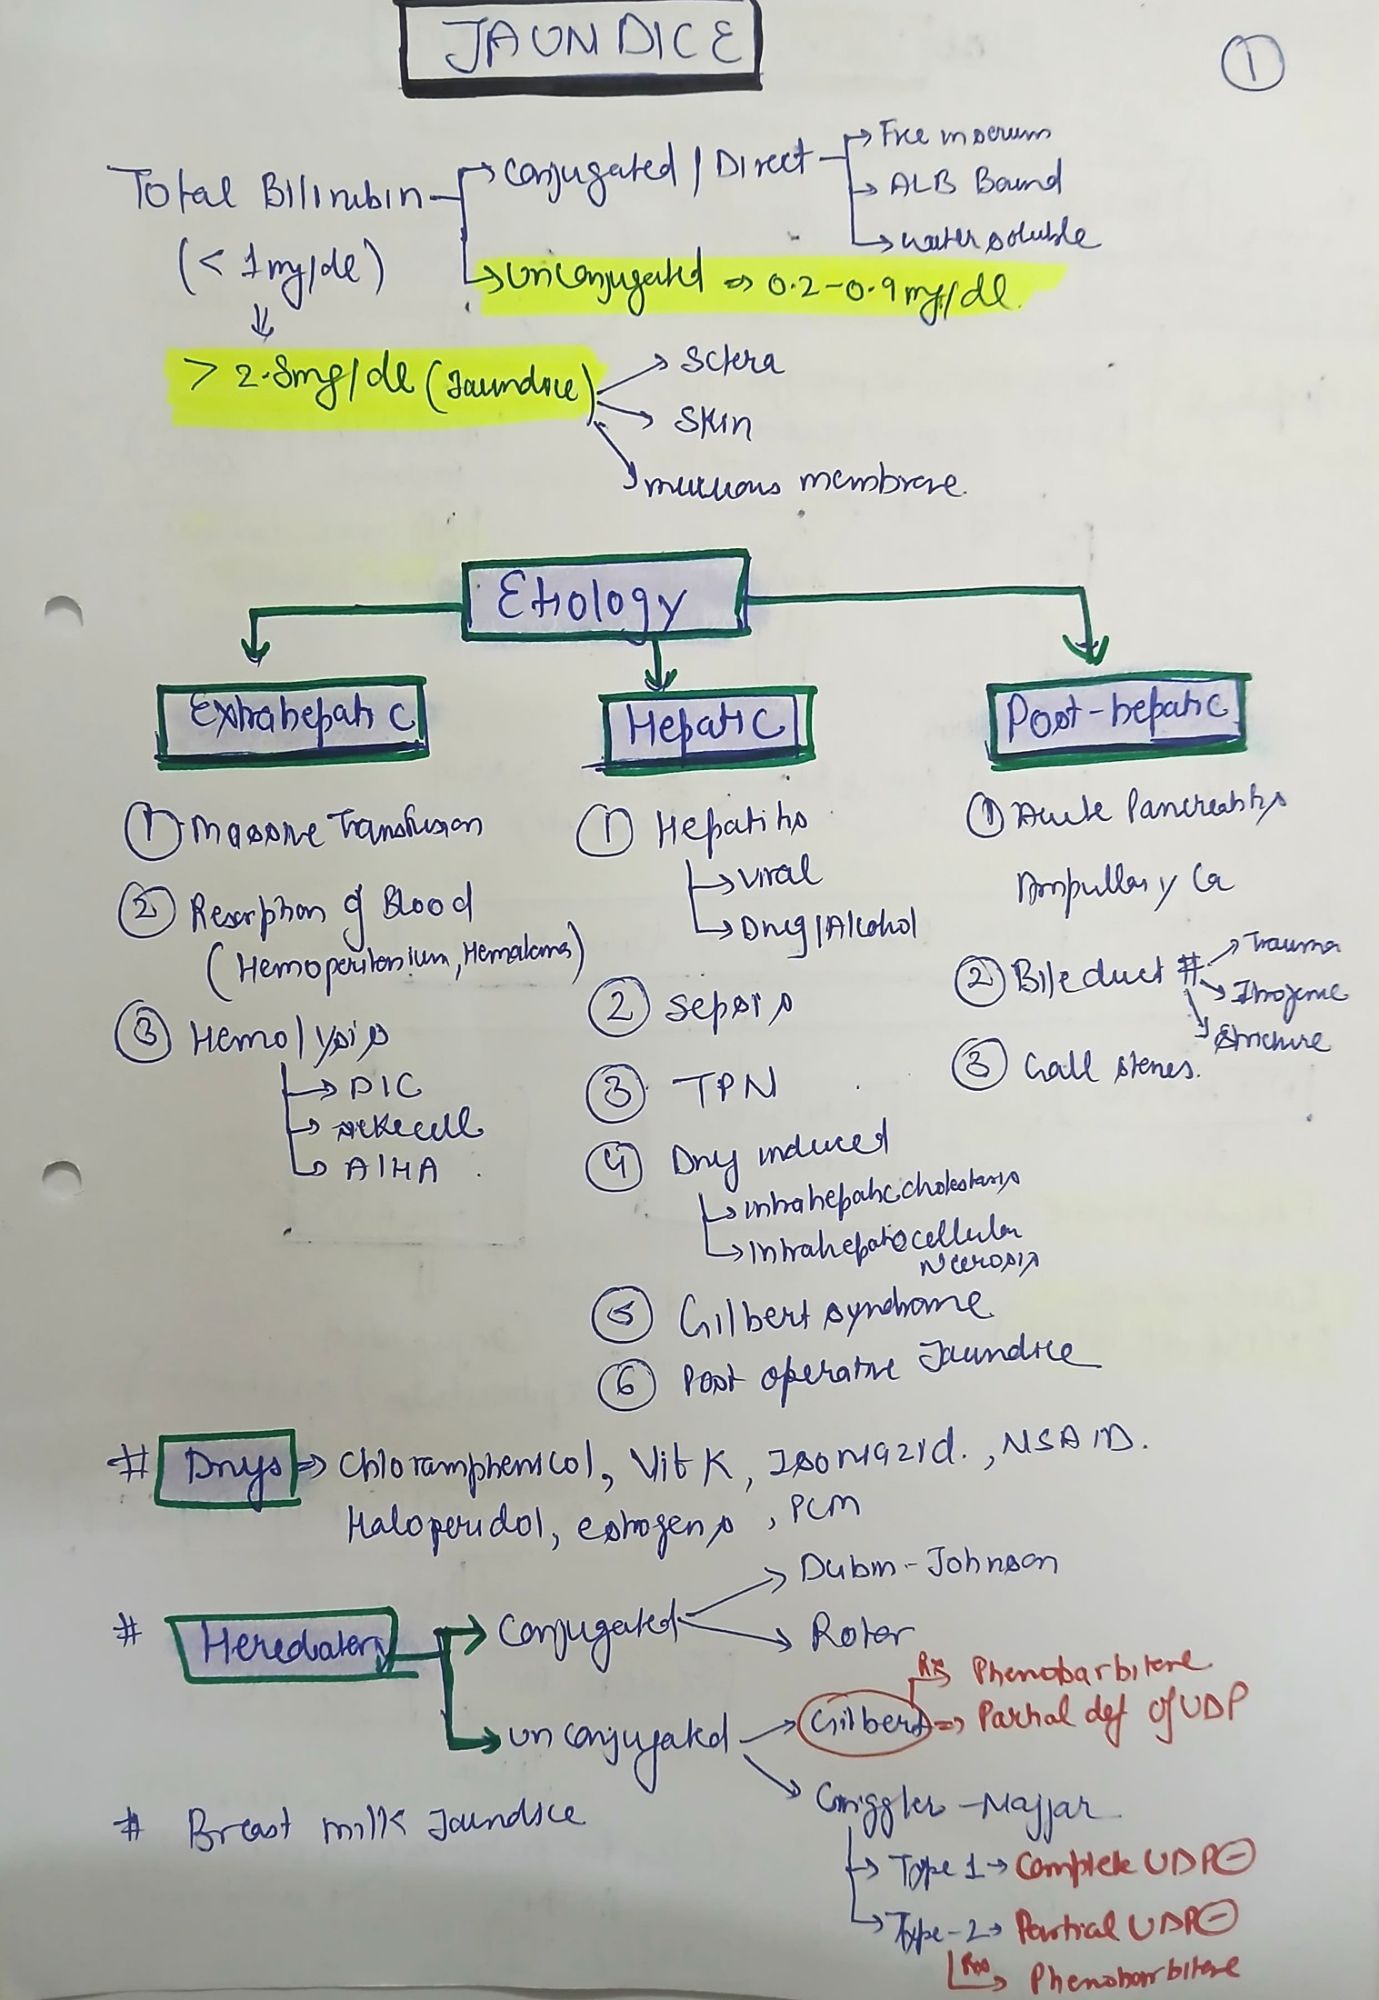 JAUNDICE
1
Total Bilirubin
(< 1mg/dl)
Conjugated / Direct
Free in serum
ALB Bound
water soluble
Unconjugated ⇒ 0.2-0.9 mg/dl.
> 2.5mg/dl (Jaundice)
Sclera
Skin
mucuous membrane.
Etiology
Extrahepatic
Hepatic
Post-hepatic
① Massive Transfusion
② Resorption of Blood
(Hemoperitonium, Hematoma)
③ Hemolysis
→ DIC
→ sickecell
→ AIHA
① Hepatitis
→ Viral
→ Drug/Alcohol
② Sepsis
③ TPN
④ Drug induced
→ intrahepatic cholestasis
→ Intrahepatocellular
Necrosis
⑤ Gilbert syndrome
⑥ Post operative Jaundice
① Acute Pancreatitis
Ampullary Ca
② Bileduct #
→ Trauma
→ Itrogenic
→ Stricture
③ Gall stones.
# Drugs ⇒ Chloramphenicol, Vit K, Isoniazid., NSAID.
Haloperidol, estrogens, PCM
# Heredatery
Conjugated
Dubin-Johnson
Rotor
Unconjugated
Rx → Phenobarbitone
Gilbert ⇒ Partial def of UDP
Criggler-Najjar
→ Type 1 → Complete UDP ⊖
→ Type-2 → Partial UDP ⊖
Rx → Phenobarbitone
# Breast milk Jaundice